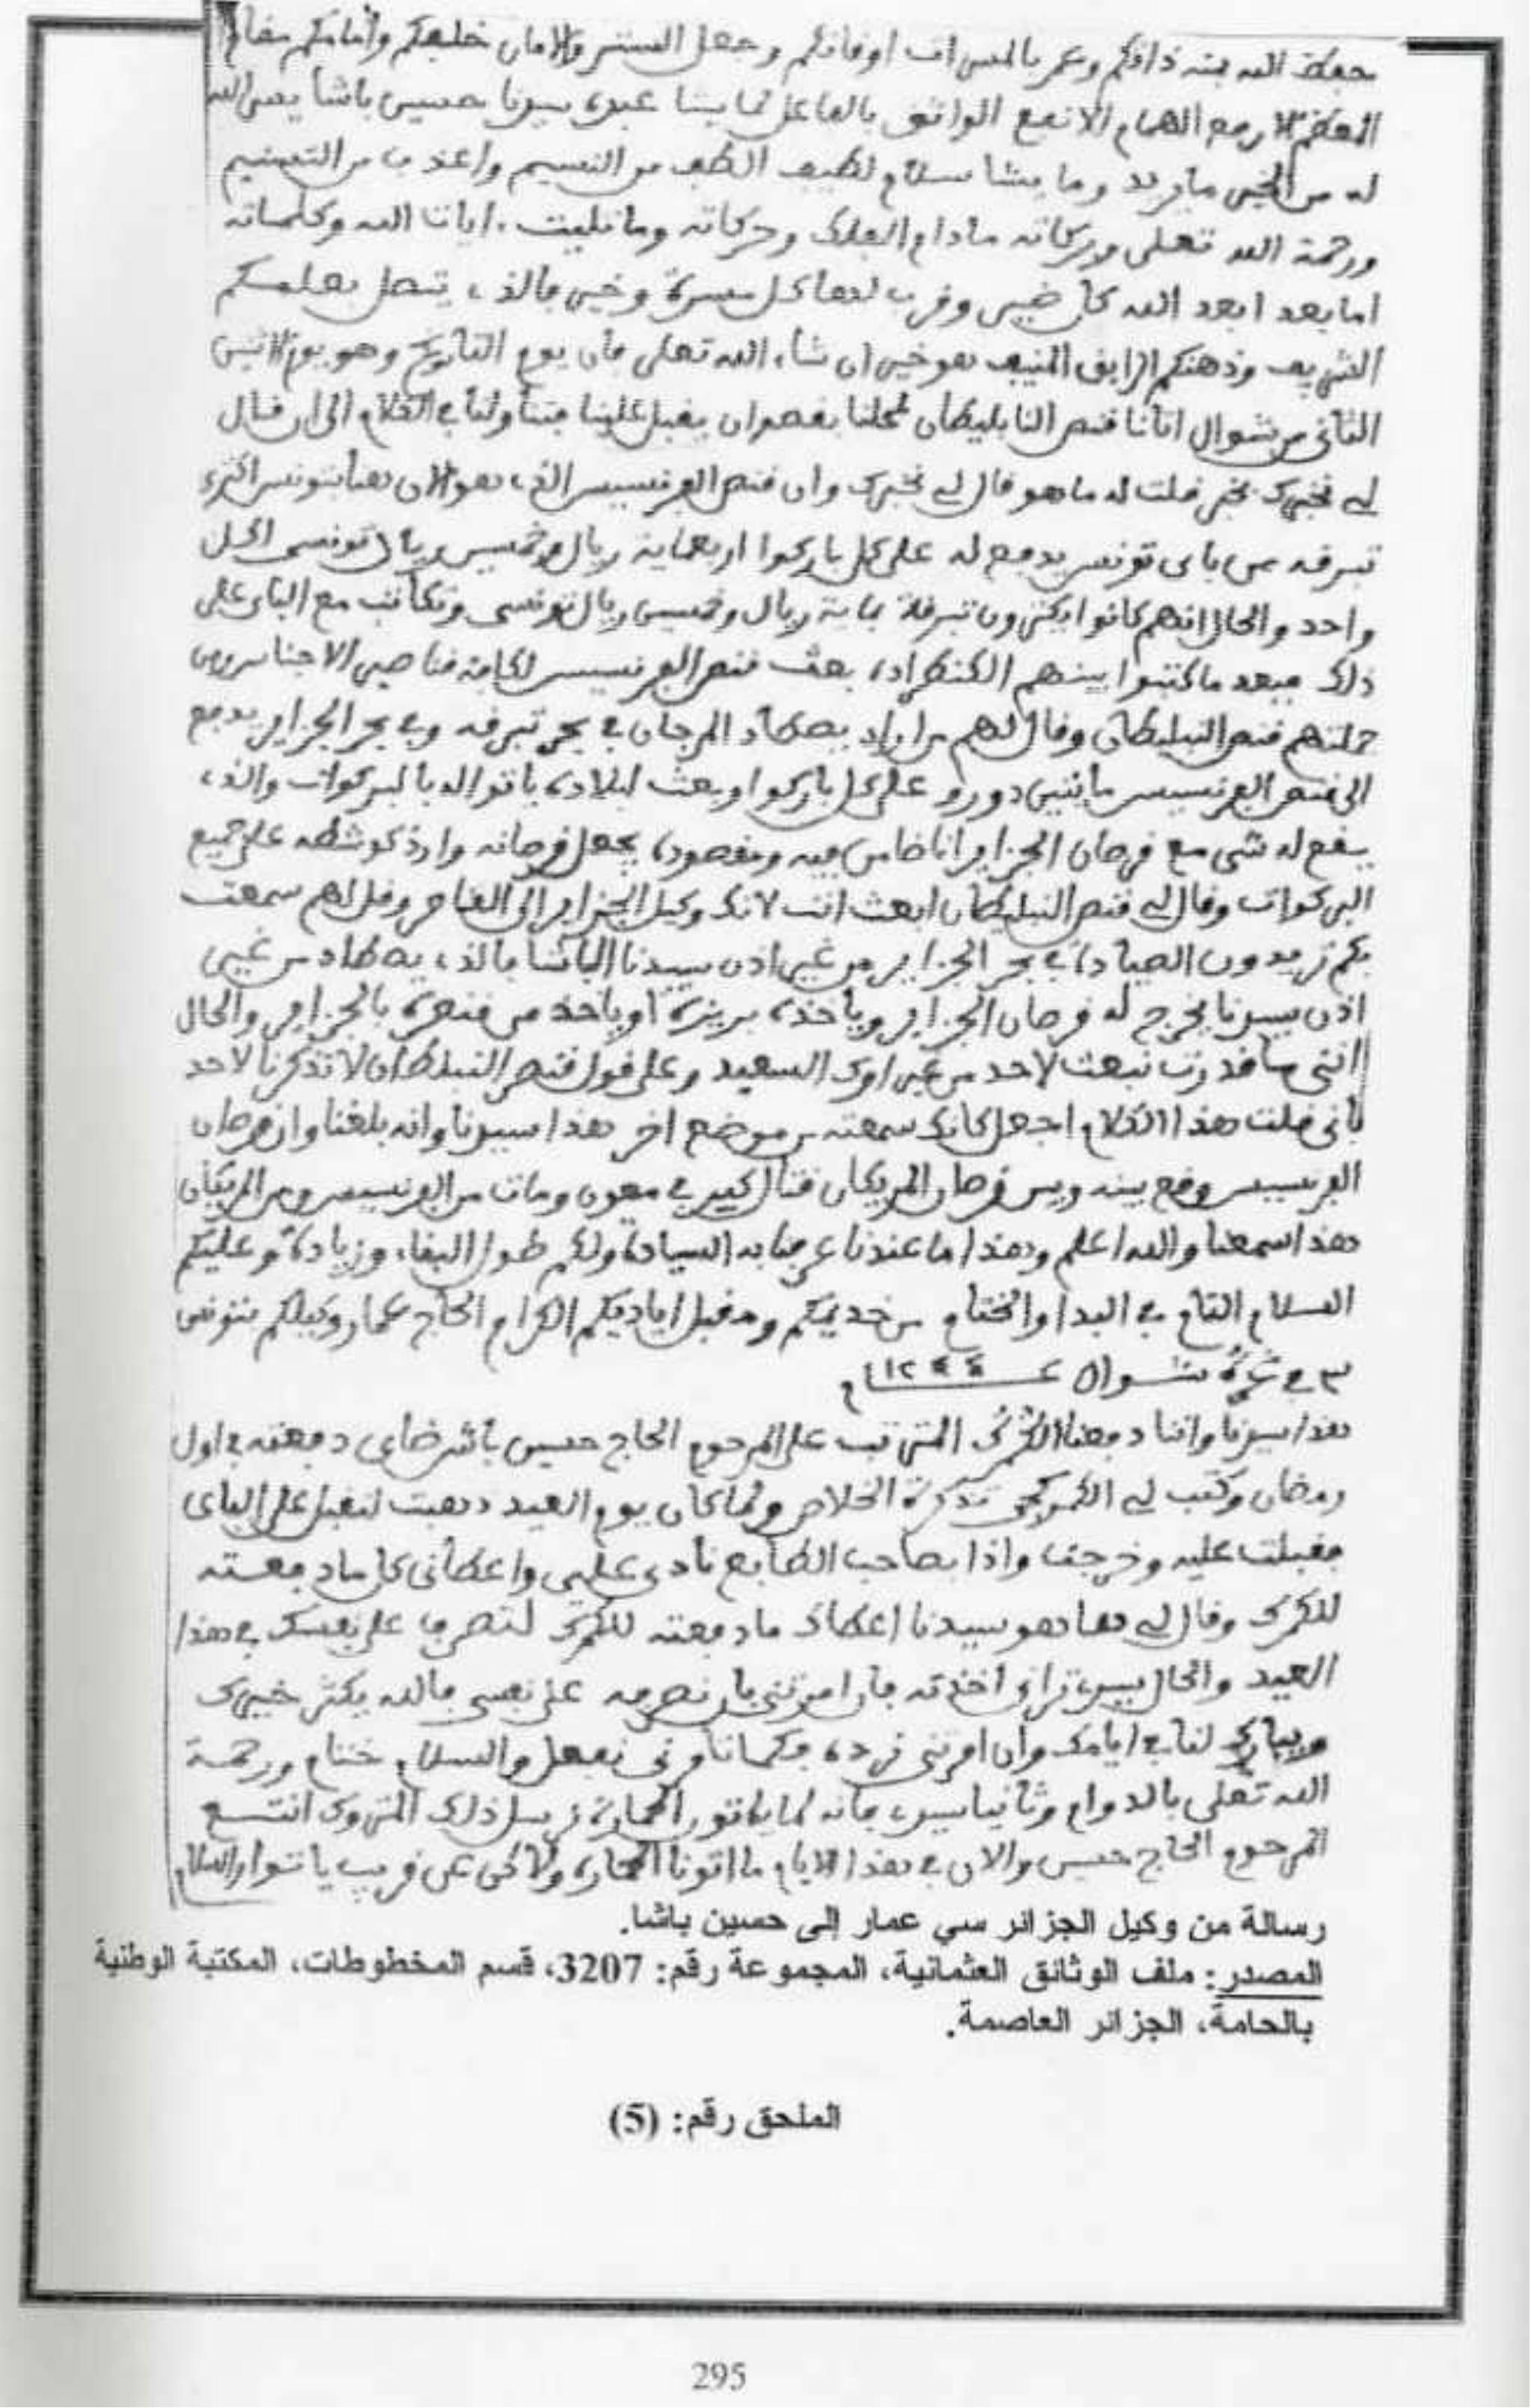 حفظ الله بمنه ذاتكم وعمر بالمسرات اوقاتكم وجعل الستر والامان خلفكم وأمامكم مقام
المعظم الارفع الهمام الانفع الواثق بالفاعل لما يشا عبده سيدنا حسين باشا يسر الله
له من الخير ما يريد وما يشا سلام لطيف الطف من النسيم واعذب من التسنيم
ورحمة الله تعلى وبركاته مادام الفلك وحركاته وما تليت ءايات الله وكلماته
اما بعد ابعد الله كل ضير وقرب لنا كل مسرة وخير فالذي يتصل بعلمكم
الشريف وذهنكم الرايق المنيف هو خير ان شاء الله تعلى فان يوم التاريخ وهو يوم الاثنين
الثاني من شوال اتانا قنصر النابليطان لمحلنا بقصد ان يقبل علينا في الكلام الى ان قال
لي نخبرك بخبر قلت له ما هو قال لي نخبرك وان قنصر الفرنسيس الذي هو الان هنا بتونس اكترى
تبرقه من باى تونس يدفع له على كل باركوا اربعماية ريال وخمسين ريال تونسى الكل
واحد والحال انهم كانوا يكترون تبرقة بماية ريال وخمسين ريال تونسى وتكاتب مع الباى على
ذلك فبعد ما كتبوا بينهم الكنطرادة بعث قنصر الفرنسيس لكافة قناصير الاجناس ومن
جملتهم قنصر النبليطان وقال لهم من اراد يصطاد المرجان في بحر تبرقه وفي بحر الجزاير يدفع
الى قنصر الفرنسيس مايتين دورو على كل باركوا وبعث لبلاده ياتوا له بالبركوات والذي
يقع له شى مع قرصان الجزاير انا ضامن فيه ومقصوده يجعل قرصانه على جميع
البركوات وقال لي قنصر النبليطان ابعث انت لانك وكيل الجزاير الى القناصر وقل لهم سمعت
بكم تريدون الصيادة في بحر الجزاير من غير اذن سيدنا الباشا فالذي يصطاد من غير
اذن سيدنا يخرج له قرصان الجزاير وياخذه او ياخذ من قنصره بالجزاير والحال
اننى ما قدرت نبعث لاحد من غير امرك السعيد وعلى قول قنصر النبلطان لا تذكرنا لاحد
بأنى قلت هذا الكلام اجعل كانك سمعته من موضع اخر هذا سيدنا وانه بلغنا وان قرصان
الفرنسيس وقع بينه وبين قرصان المريكان قتال كبير في ومات من الفرنسيس ومن المريكان
هذا سمعنا والله اعلم وهذا ما عندنا به السيادة ولكم طول البقاء وزيادة وعليكم
السلام التام في البدا والختام من خديمكم ومقبل اياديكم الكرام الحاج عمار وكيلكم بتونس
في شوال ١٢٤٤
هذا سيدنا واننا دفعنا الكمرك المترتب على المرحوم الحاج حسين دفعته في اول
رمضان وكتب لي الكمركجى تذكرة الخلاص ولما كان يوم العيد ذهبت لنقبل على الباى
فقبلت عليه وخرجت واذا بصاحب الطابع نادى علي واعطانى كل ما دفعته
للكمرك وقال لي ها هو سيدنا اعطاك ما دفعته للكمرك لتصرف على نفسك في هذا
العيد والحال سيدي ترانى اخذته فان امرتنى بان نصرفه على نفسى فالله يكثر خيرك
ويبارك لنا في ايامك وان امرتنى نرده فكما تامرنى نفعل والسلام ختام ورحمة
الله تعلى بالدوام وثانيا سيدي فانه لما ياتور الحمارة نرسل ذلك المتروك انتاع
المرحوم الحاج حسين والان في هذا الايام ما اتونا الحمارة ولاكن عن قريب ياتوا والسلام
رسالة من وكيل الجزائر سي عمار إلى حسين باشا.
المصدر: ملف الوثائق العثمانية، المجموعة رقم: 3207، قسم المخطوطات، المكتبة الوطنية
بالحامة، الجزائر العاصمة.
الملحق رقم: (5)
295